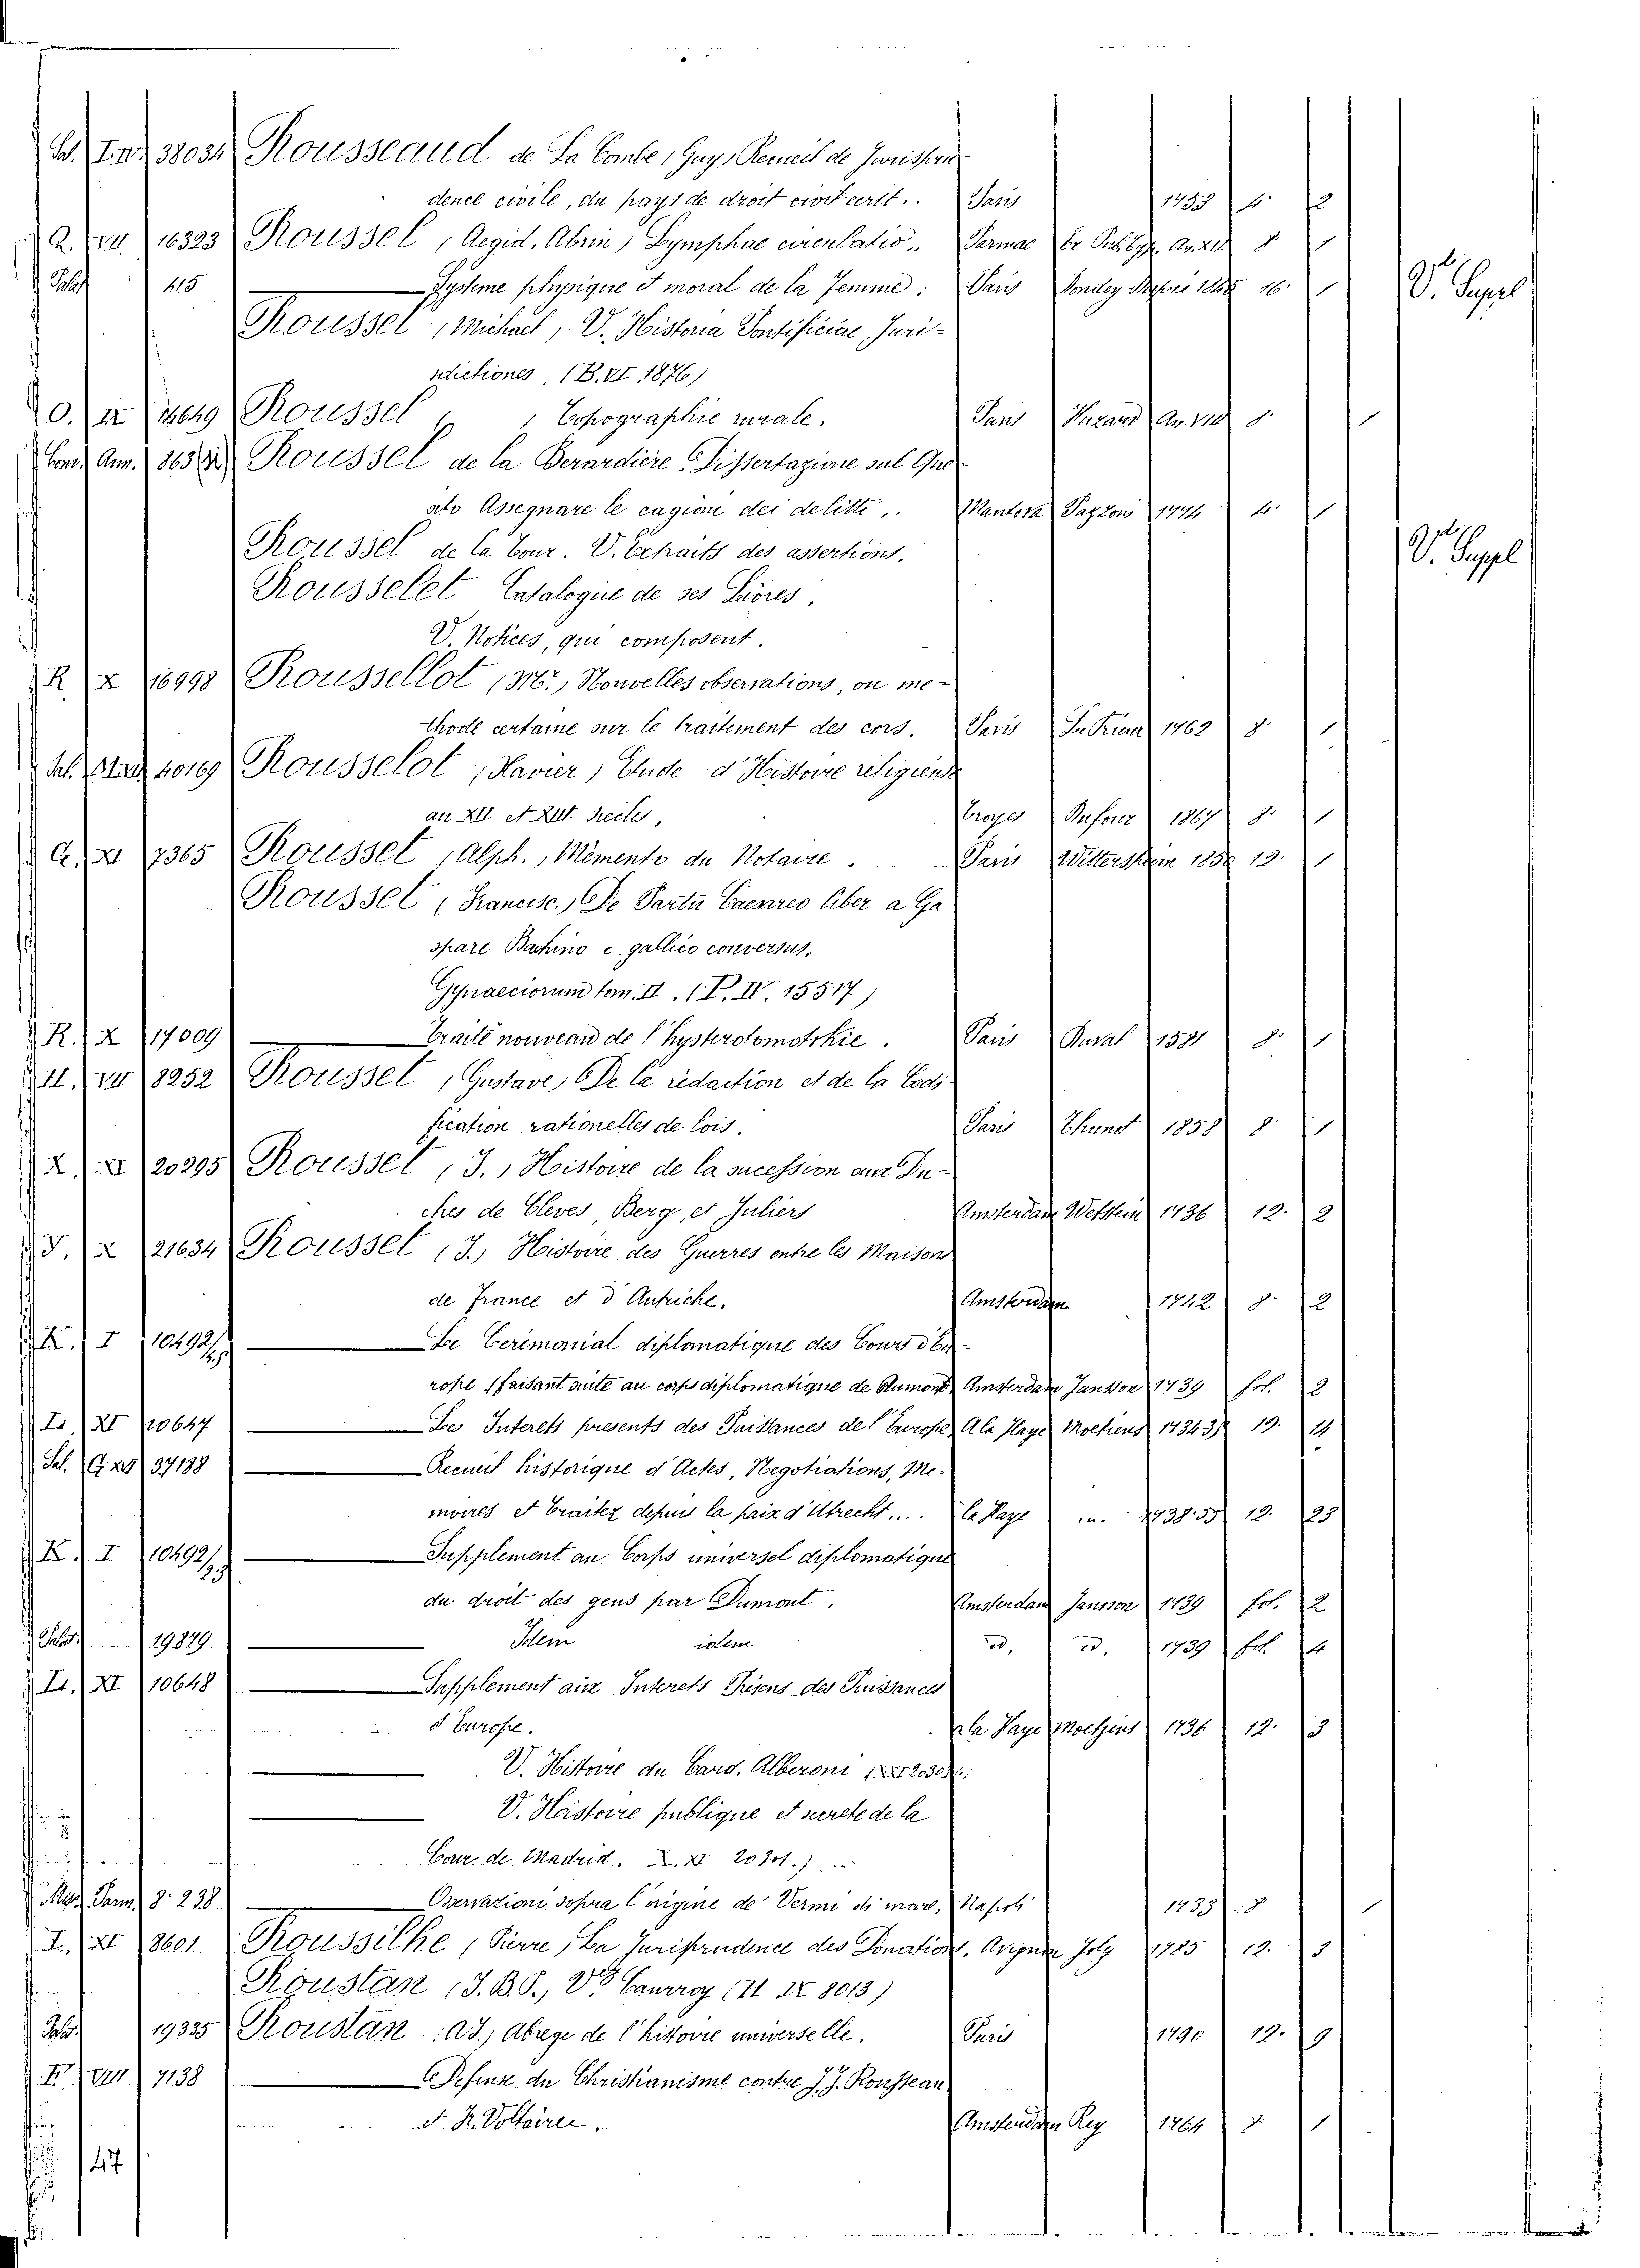 Sal. I. IV. 38034 Rousseaud de La Combe, Guy, Recueil de Jurispru-
dence civile, du pays de droit civil ecrit.. Paris 1753 4. 2
Q. VII. 16323 Roussel, Aegid. Abrin, Lymphae circulatio.. Parmae An. XII 8 1
Palat 415 Systeme physique et moral de la femme: Paris 16. 1 V. Suppl
Roussel, Michael, V. Historia Pontificiae Juri-
sdictiones. (B. VI. 1876)
O. IX 14649 Roussel, Topographie rurale. Paris Huzard An. VIII 8. 1
Com. Ann. 863 Roussel de la Berardière, Dissertazione sul Que-
sito Assegnare le cagioni dei delitti.. Mantova Pazzoni 1774 4. 1
Roussel de la Tour. V. Extraits des assertions. V. Suppl
Rousselet Catalogue de ses Livres.
V. Notices, qui composent.
R X 16998 Roussellot, Mr., Nouvelles observations, ou me-
thode certaine sur le traitement des cors. Paris 1762 8. 1
Sal. 40169 Rousselot, Xavier, Etude d'Histoire religieuse
au XII et XIII siecles, Troyes Dufour 1867 8. 1
G. XI 7365 Rousset, Alph., Mémento du Notaire. Paris Wittersheim 12. 1
Rousset (Francisc.) De Partu Caesareo liber a Ga-
spare Bachino e gallico conversus.
Gynaeciorum tom. II. (P. IV. 15517)
R. X 17009 Traité nouveau de l'hysterotomotokie. Paris Duval 1581 8. 1
II. VII 8252 Rousset, Gustave, De la rédaction et de la Codi-
fication rationelles de lois. Paris Thunot 1858 8. 1
X. XI 20295 Rousset, J., Histoire de la sucession aux Du-
ches de Cleves, Berg, et Juliers Amsterdam Wetstein 1736 12. 2
S. X 21634 Rousset, J., Histoire des Guerres entre les Maison
de France et d'Autriche. Amsterdam 1742 8. 2
K. I 10492 Le Cerémonial diplomatique des Cours d'Eu-
rope, faisant suite au corps diplomatique de Dumont, Amsterdam Jansson 1739 fol. 2
I. XI 10647 Les Interets presents des Puissances de l'Europe, A la Haye Moetjens 1734 12. 14
Sal. G. XII. 37188 Recueil historique d'Actes, Negotiations, Me-
moires et Traitez depuis la paix d'Utrecht.... la Haye 12. 23
K. I 10492 Supplement au Corps universel diplomatique
du droit des gens par Dumont. Amsterdam Jansson 1739 fol. 2
Palat. 19879. Idem idem id. id. 1739 fol. 4
I. XI. 10648 Supplement aux Interets Présens des Puissances
d'Europe. a la Haye Moetjens 1736 12. 3
V. Histoire du Card. Alberoni
V. Histoire publique et secrete de la
Cour de Madrid. X. XI 20301.)
Misc. Parm. 8. 238 Osservazioni sopra l'origine de' Vermi di mare. Napoli 8 1
I. XI. 8601. Roussilhe, Pierre, La Jurisprudence des Donations. Avignon Joly 1785 12. 3
Roustan, J. B. S., V. Caurroy (II IX 8013)
Palat. 19335 Roustan, A. J., Abregé de l'histoire universelle. Paris 1790 12. 9
F. VIII. 7138 Defense du Christianisme contre J. J. Rousseau
et Voltaire. Amsterdam Rey 1764 8 1
47